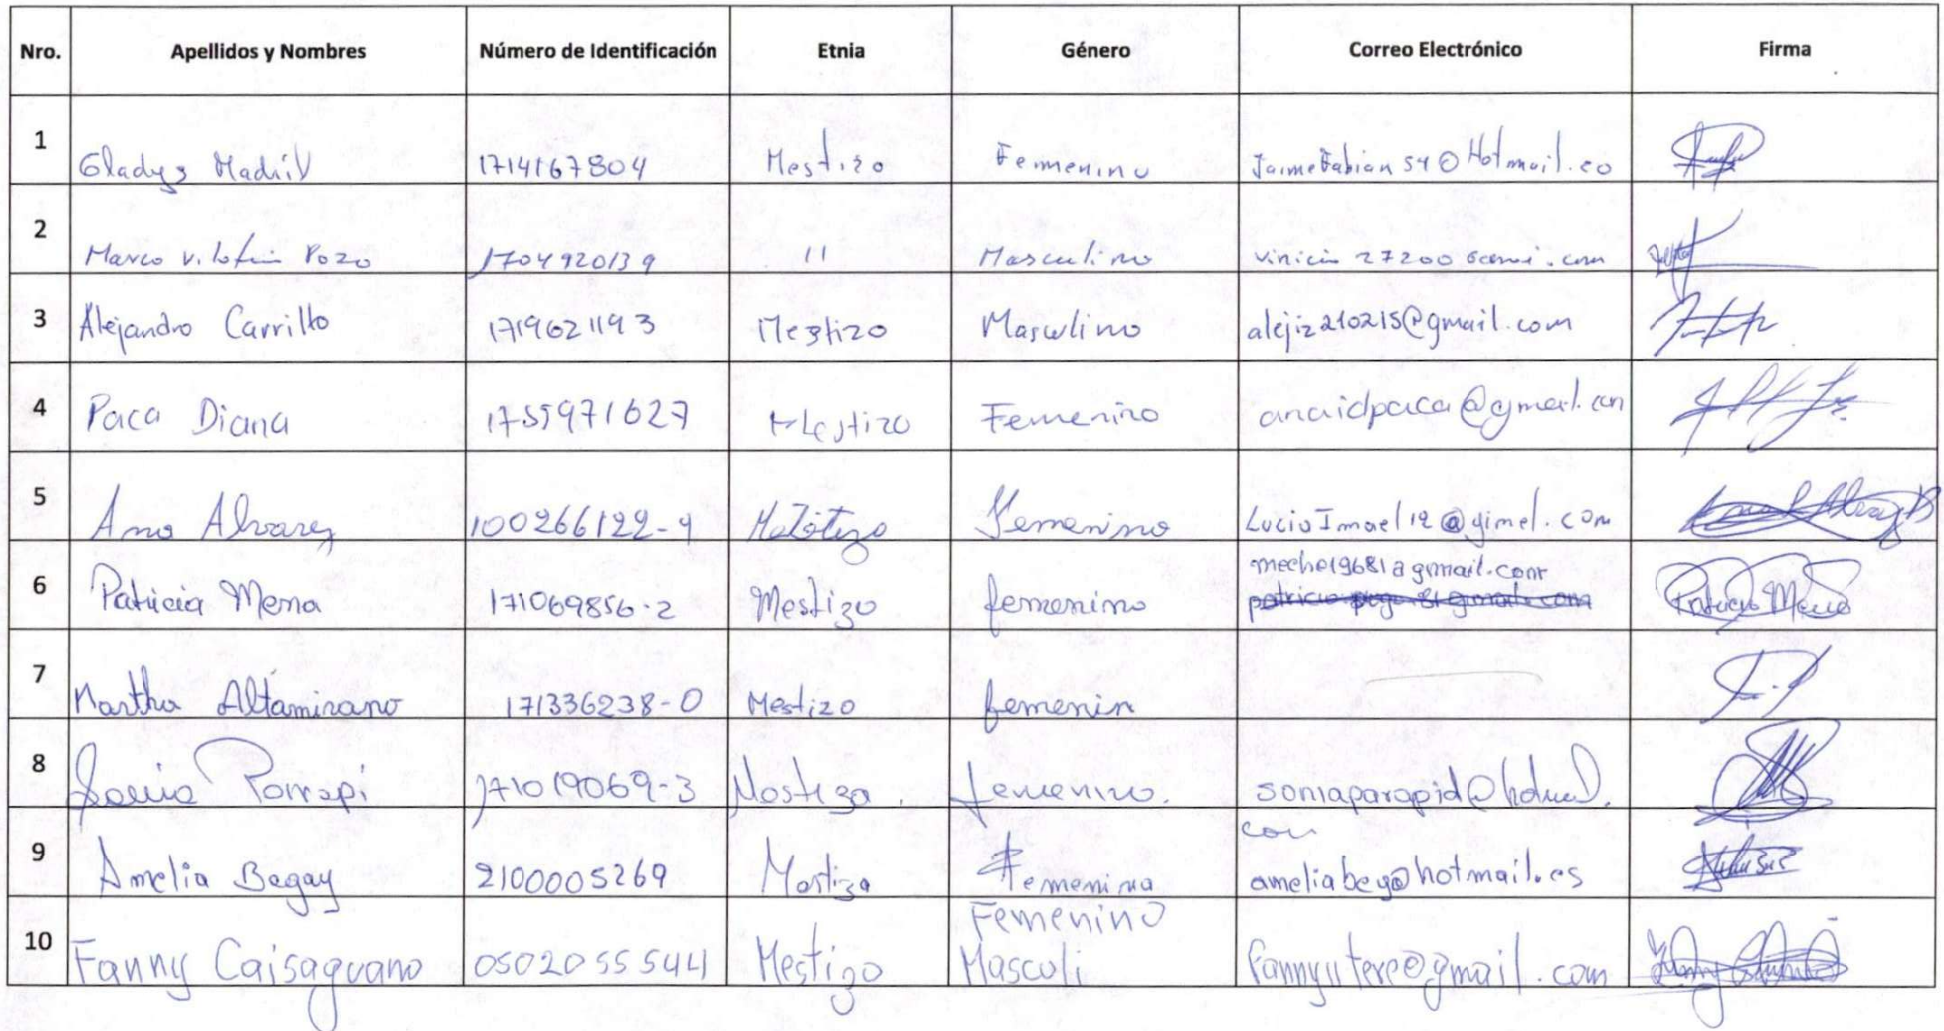 Nro. Apellidos y Nombres Número de Identificación Etnia Género Correo Electrónico Firma
1 Gladys Madril 1714167804 Mestizo Femenino JaimeFabian54@Hotmail.co
2 Marco Pozo 1704920139 11 Masculino
3 Alejandro Carrillo 1719621193 Mestizo Masculino alejiz210215@gmail.com
4 Paca Diana 1755971627 Mestizo Femenino anaidpaca@gmail.com
5 Ana Alvarez 100266122-9 Femenino LucioImael12@gimel.com
meche19681a gmmail.com
6 Patricia Mena 171069856-2 Mestizo femenino Patricia Mena
7 Martha Altamirano 171336238-0 Mestizo femenin
8 171019069-3 Mestiza. femenino. soniaparapid@hotmail.
com
9 Amelia Bagay 2100005269 Mestiza Femenina ameliabeg@hotmail.es
Femenino
10 Fanny Caisaguano 0502055544 Mestizo Masculi Fannyutere@gmail.com